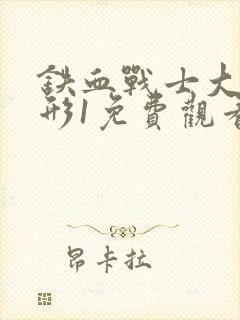 鉄血戰士大
形1免費觀看
昂卡拉